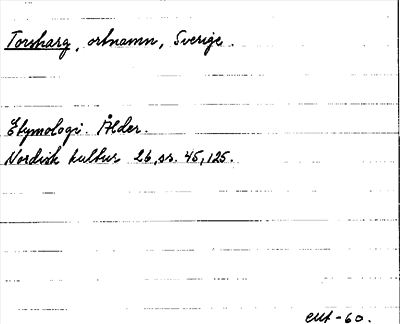 Torsharg, ortnamn, Sverige.
Etymologi. Ålder.
Nordisk kultur 26, ss. 45, 125.
-60.